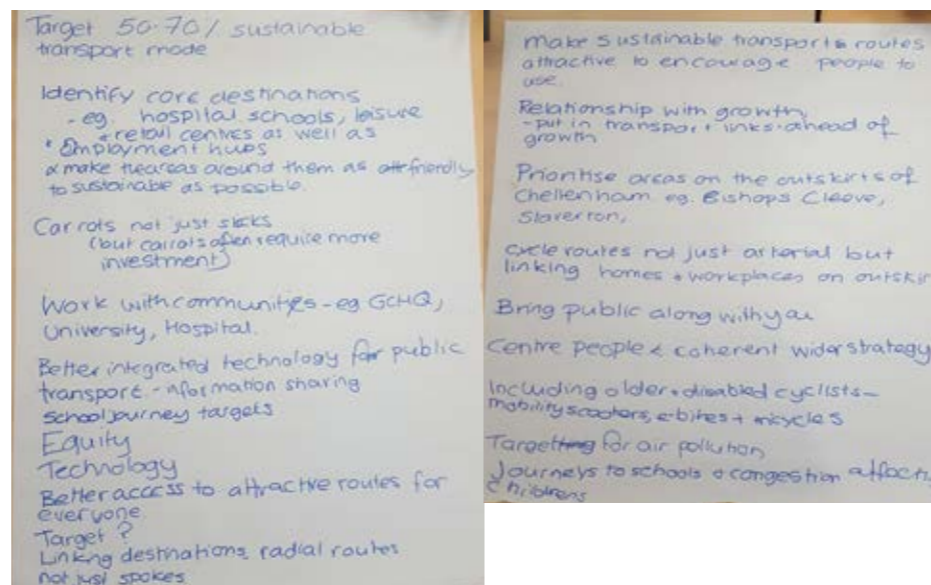 Target 50-70% sustainable
transport mode
Identify core destinations
- eg. hospital schools, leisure
+ retail centres as well as
* Employment hubs
& make the areas around them as friendly
to sustainable as possible.
Carrots not just sticks
(but carrots often require more
investment)
Work with communities - eg GCHQ,
University, Hospital.
Better integrated technology for public
transport - information sharing
school journey targets
Equity
Technology
Better access to attractive routes for
everyone
Target?
Linking destinations, radial routes
not just spokes
make sustainable transport routes
attractive to encourage people to
use.
Relationship with growth,
- put in transport links ahead of
growth
Prioritise areas on the outskirts of
Cheltenham eg. Bishops Cleeve,
Staverton,
cycle routes not just arterial but
linking homes + workplaces on outskir
Bring public along with you
Centre people & coherent wider strategy
Including older + disabled cyclists -
mobility scooters, e-bikes + tricycles
Target for air pollution
Journeys to schools & congestion affecti
childrens